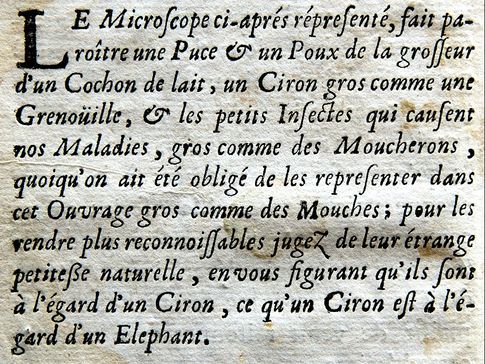 LE Microscope ci-aprés répresenté, fait pa-
roître une Puce & un Poux de la grosseur
d'un Cochon de lait, un Ciron gros comme une
Grenoüille, & les petits Insectes qui causent
nos Maladies, gros comme des Moucherons,
quoiqu'on ait été obligé de les representer dans
cet Ouvrage gros comme des Mouches; pour les
rendre plus reconnoissables jugeZ de leur étrange
petitesse naturelle, en vous figurant qu'ils sont
à l'égard d'un Ciron, ce qu'un Ciron est à l'é-
gard d'un Elephant.